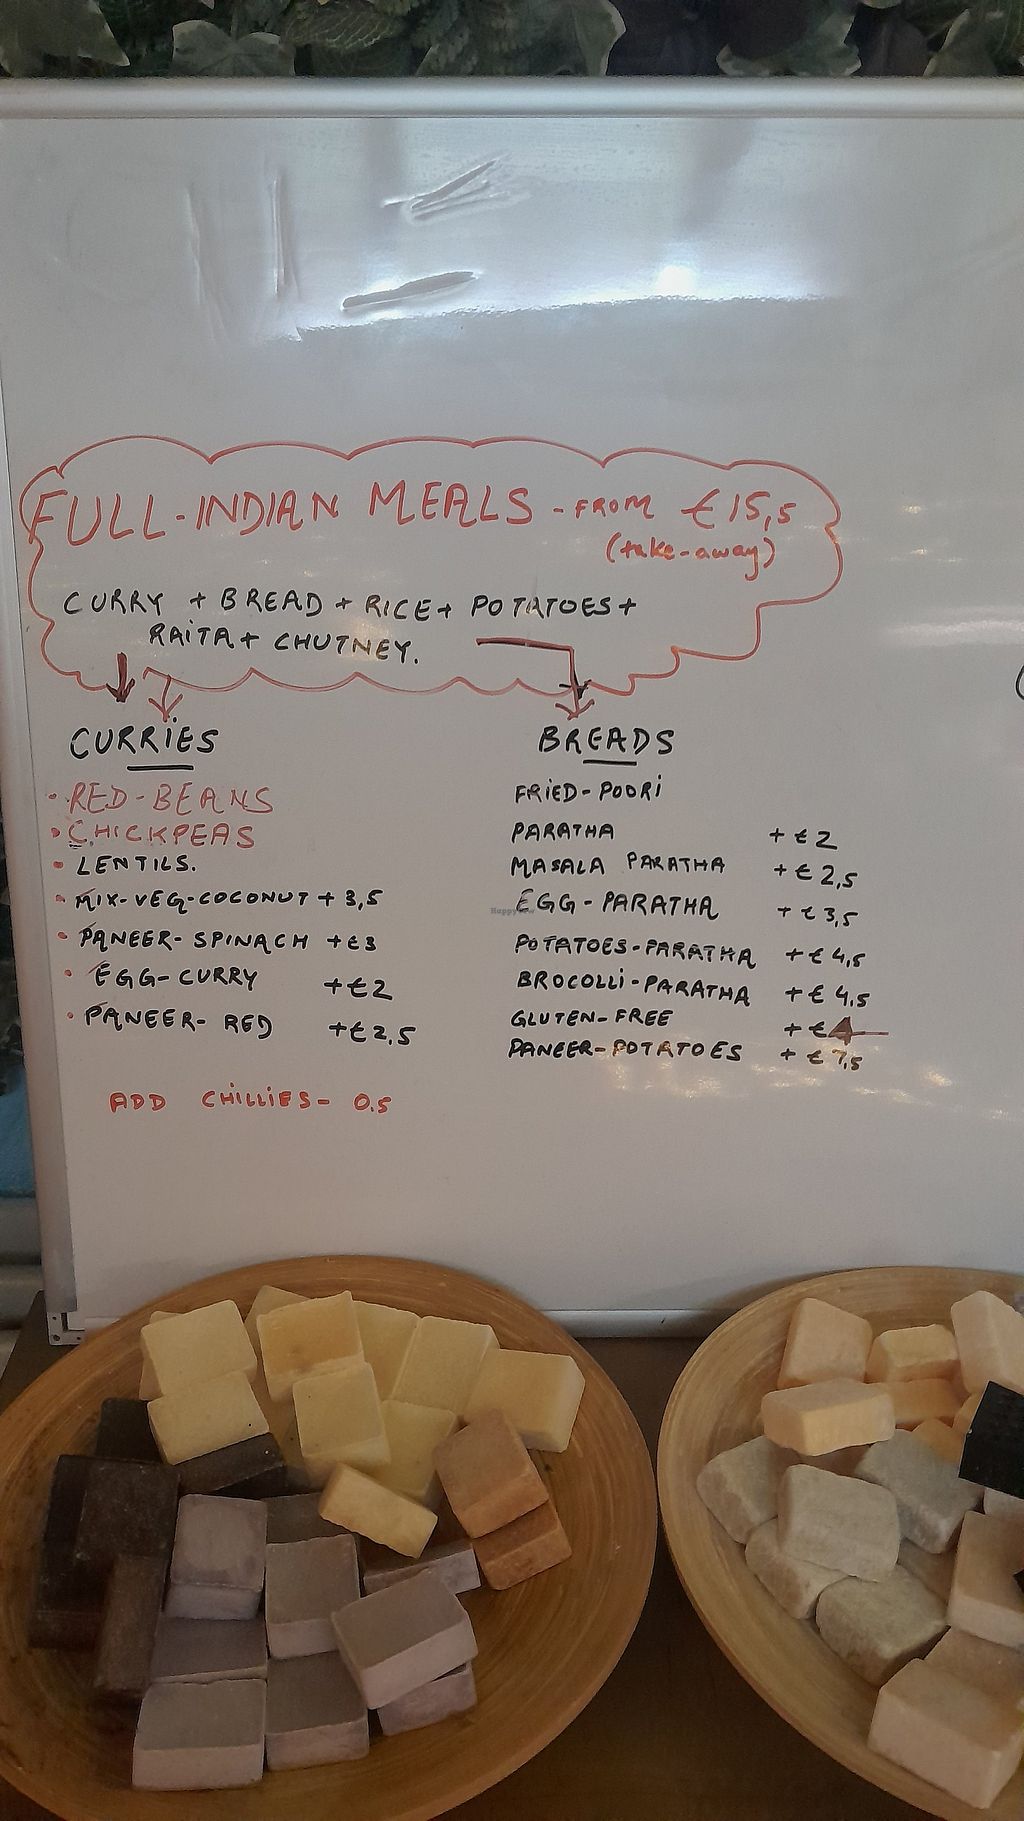 FULL-INDIAN MEALS - FROM €15,5
(take-away)
CURRY + BREAD + RICE + POTATOES +
RAITA + CHUTNEY.
CURRIES
• RED-BEANS
• CHICKPEAS
• LENTILS.
• MIX-VEG-COCONUT + 3,5
• PANEER-SPINACH + €3
• EGG-CURRY + €2
• PANEER-RED + €2,5
ADD CHILLIES- 0.5
BREADS
FRIED-POORI
PARATHA + €2
MASALA PARATHA + €2,5
EGG-PARATHA + €3,5
POTATOES-PARATHA + €4,5
BROCOLLI-PARATHA + €4,5
GLUTEN-FREE + €4
PANEER-POTATOES + €7,5